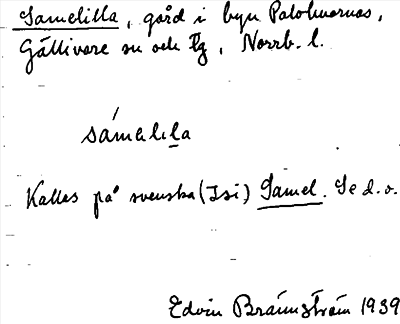 Samelilla, gård i byn Patohuornas,
Gällivare sn och tg, Norrb. l.
sámelıla
Kallas på svenska (Isi) Samel. Se d. o.
Edvin Brännström 1939